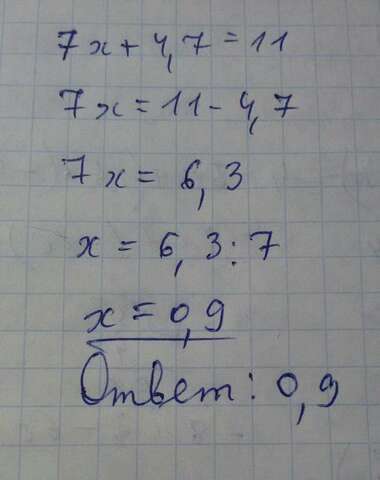 7x + 4,7 = 11
7x = 11 - 4,7
7x = 6,3
x = 6,3 : 7
x = 0,9
Ответ: 0,9